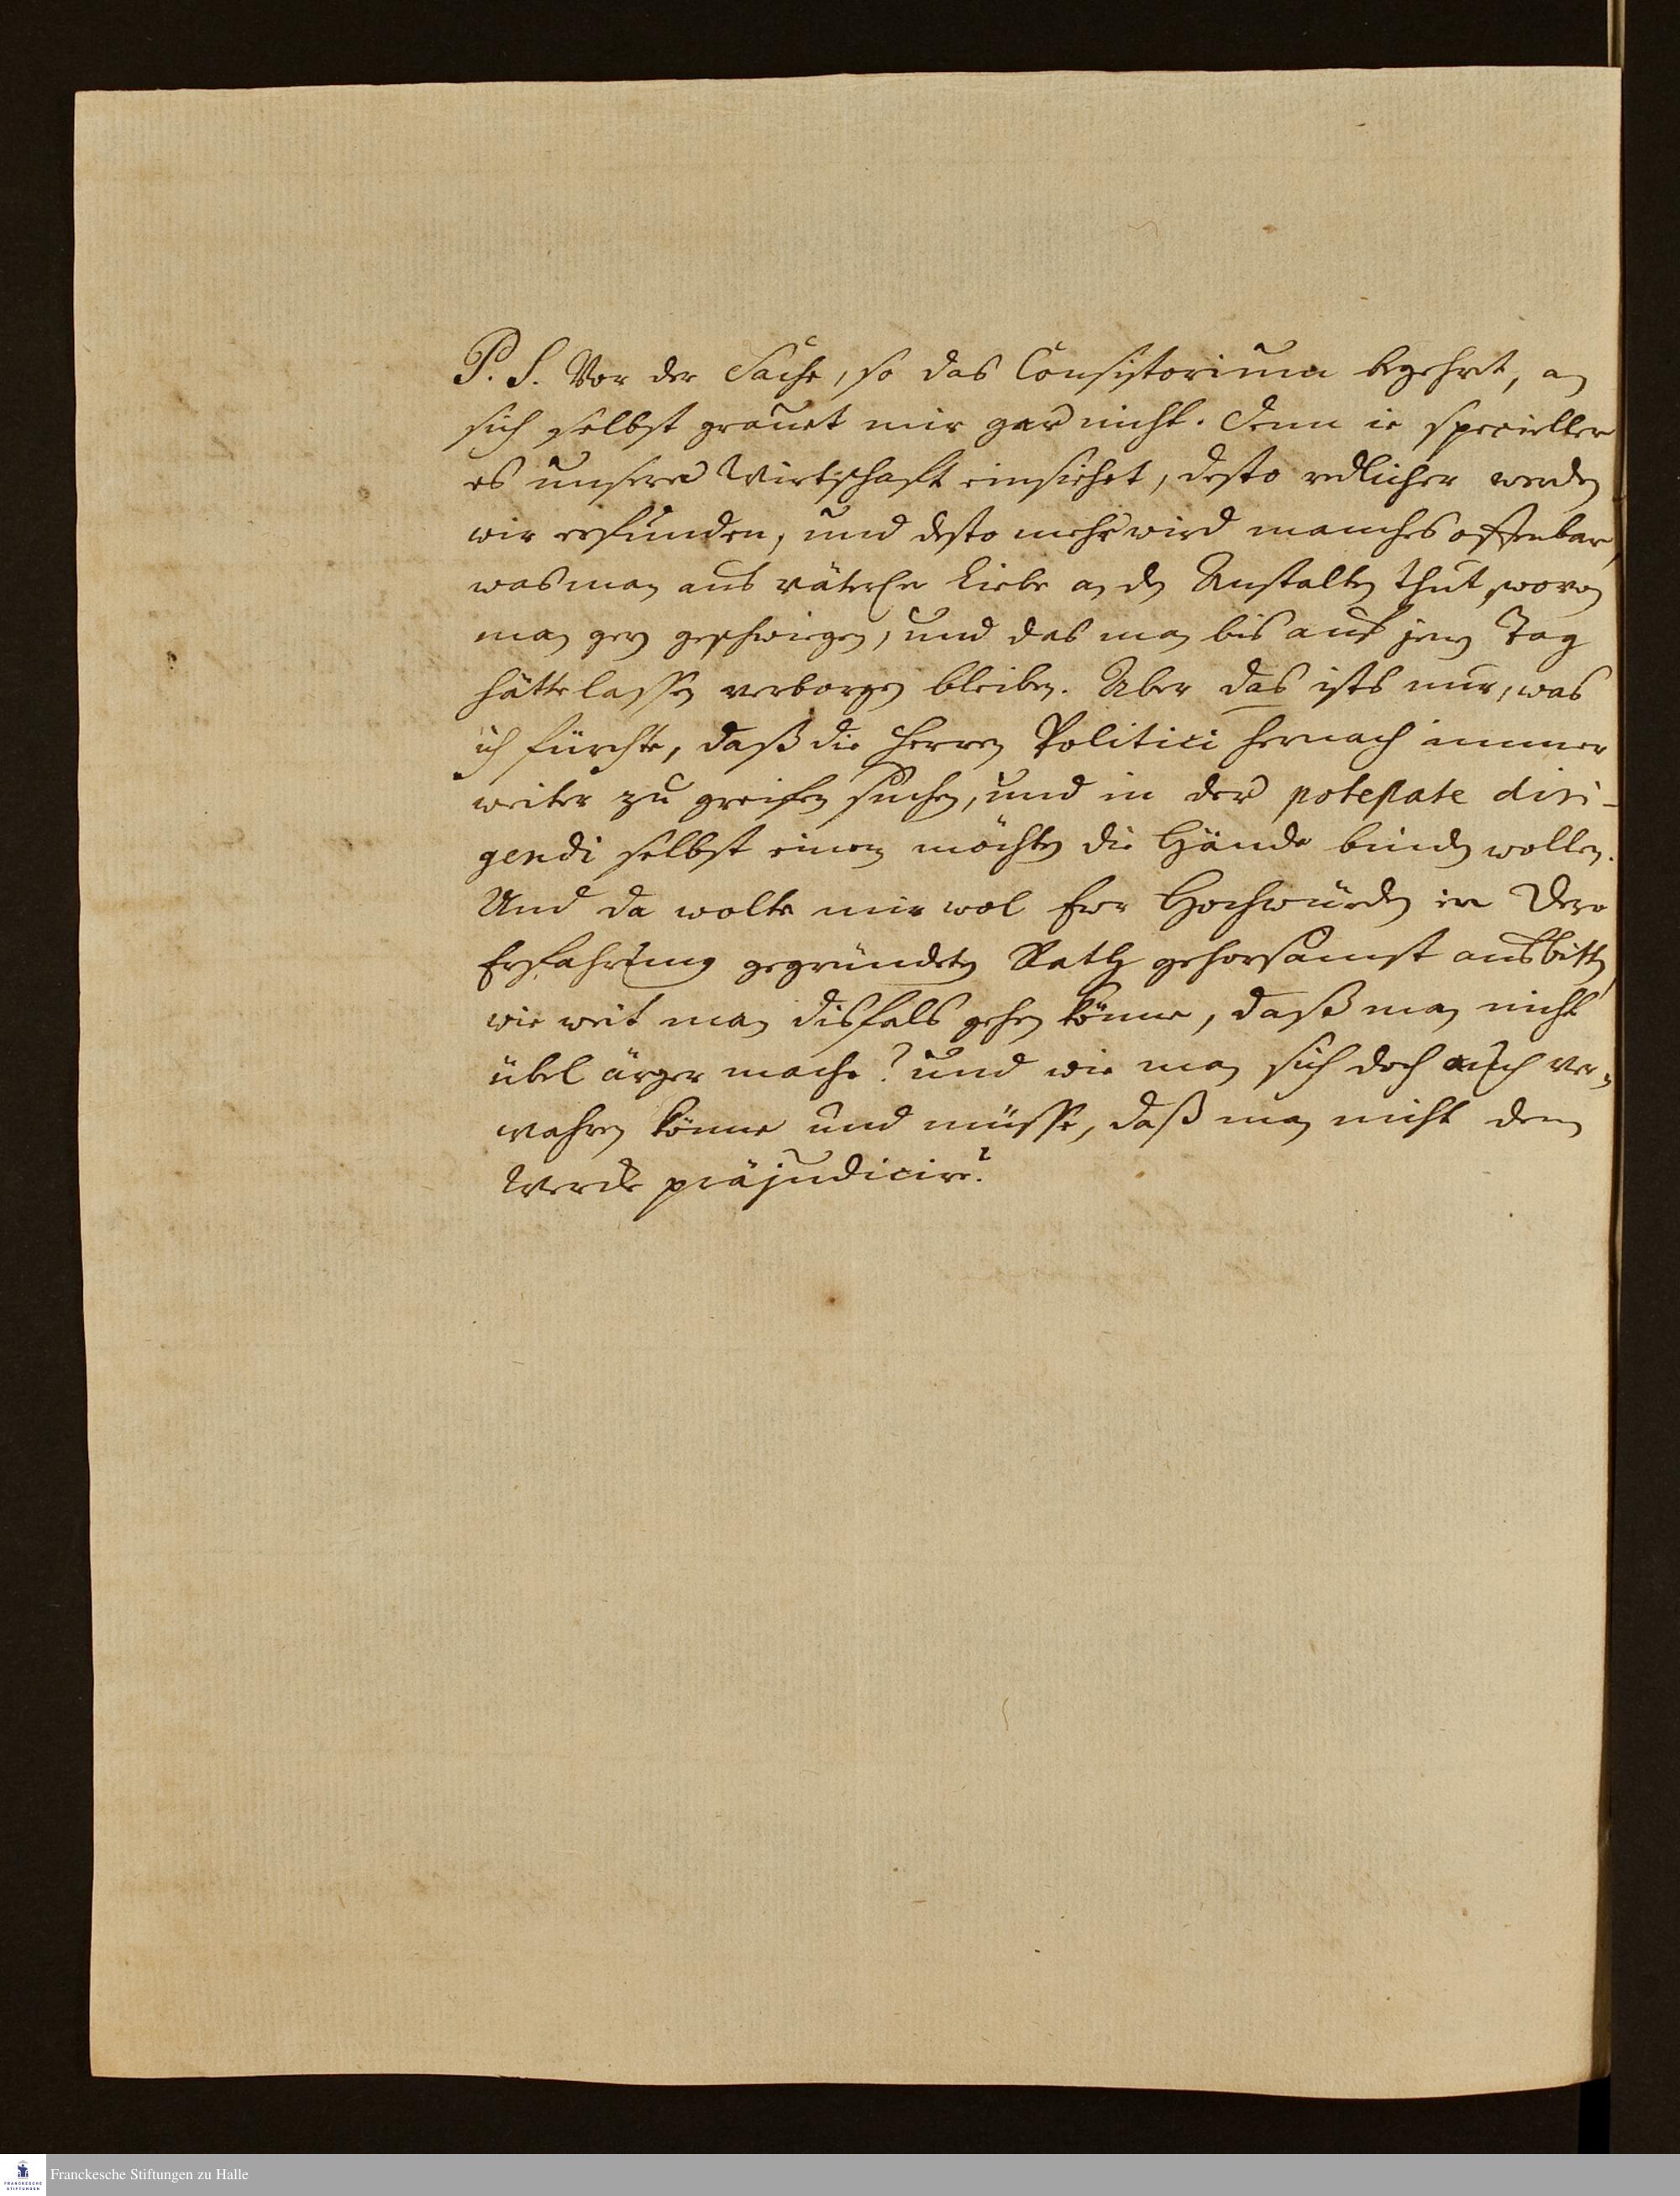 P. S. Vor der Sache, so das Consistorium begehret, an
sich selbst grauet mir gar nicht. Denn ie specieller
es unsere Wirtschaft einsiehet, desto redlicher werden
wir erfunden, und desto mehr wird manches offenbar,
was man aus väterl. Liebe an den Anstalten thut, wovon
man gern geschwiegen, und das man bis auf jenen Tag
hätte lassen verborgen bleiben. Aber das ists nur, was
ich fürchte, daß die Herren Politici hernach immer
weiter zu greifen suchen, und in der potestate diri-
gendi selbst einem möchten die Hände binden wollen.
Und da wolte mir wol Ewr Hochwürden in Dero
Erfahrung gegründeten Rath gehorsamst ausbitten,
wie weit man disfals gehen könne, daß man nicht
übel ärger mache? und wie man sich doch auch ver-
wahren könne und müsse, daß man nicht dem
Wercke präjudicire?
Franckesche Stiftungen zu Halle
FRANCKESCHE
STIFTUNGEN